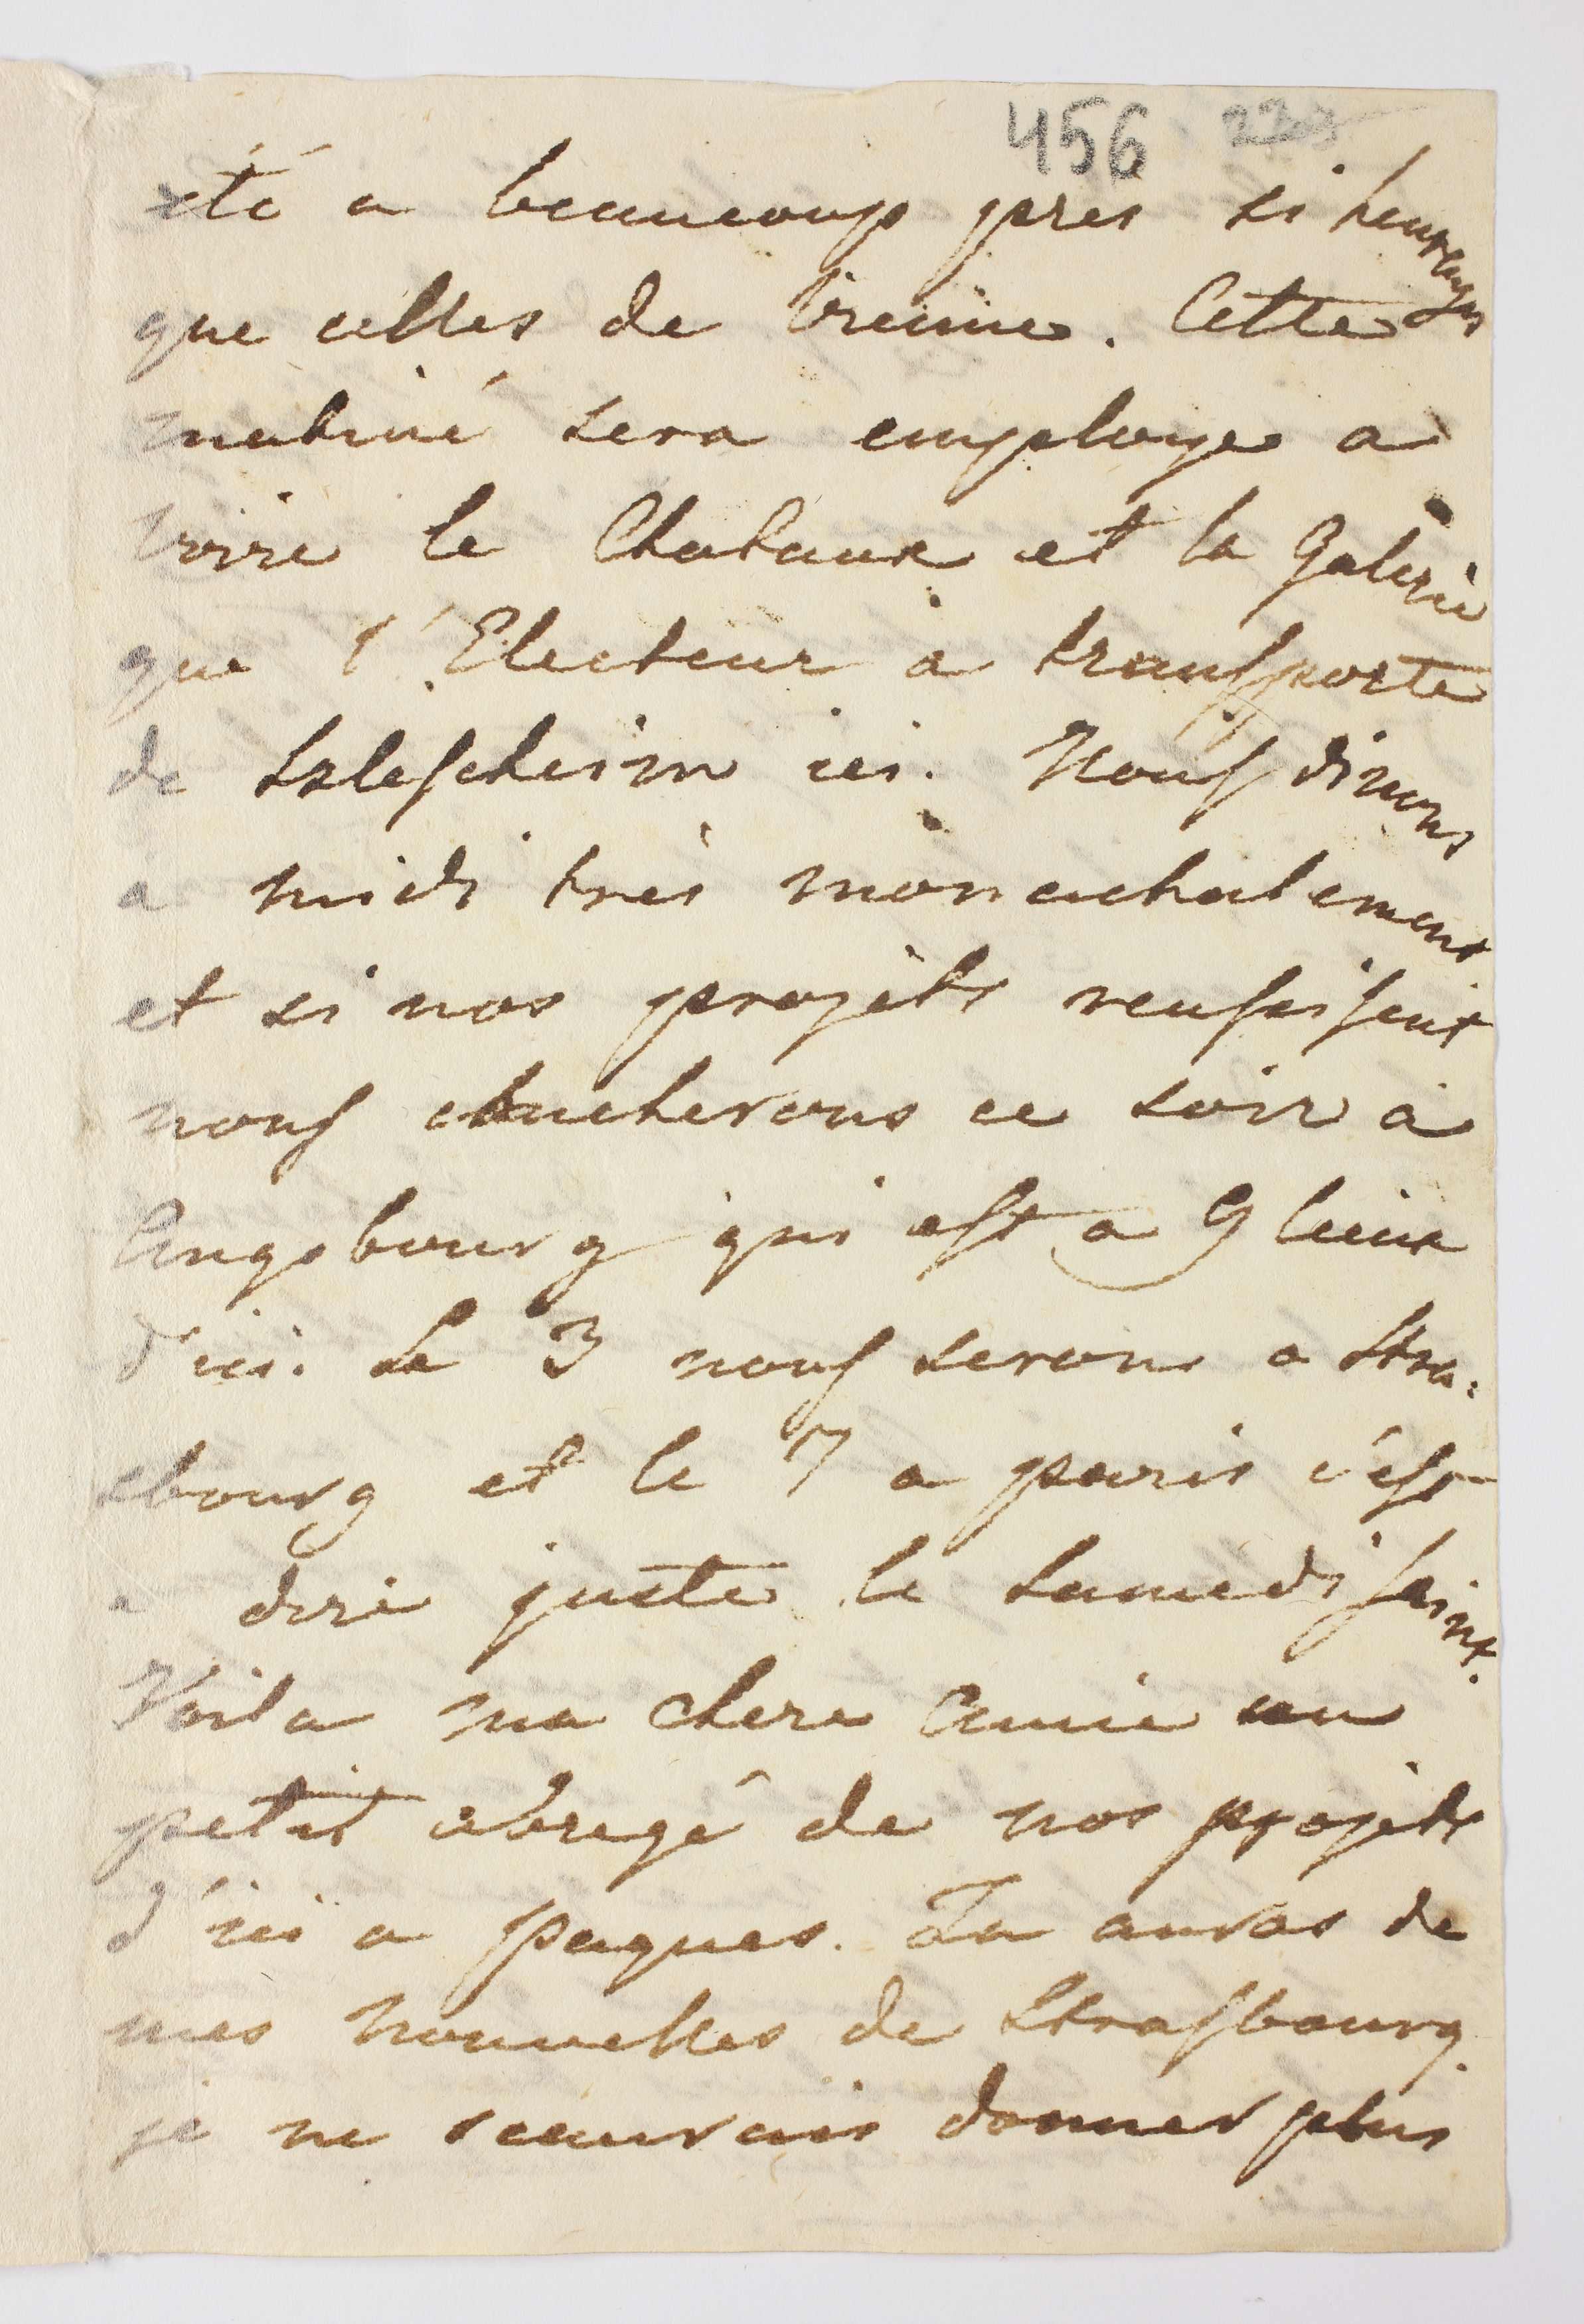 456
eté a beaucoup pres si heureuses
que celles de Vienne. Cette
matiné sera employe a
voire le Chataux et la Galerie
que l'Electeur à transporte
de Schlescheim ici. Nous dinons
a midi tres monachalement
et si nos projets reusissent
nous choucherons ce soir à
Augsbourg qui est a 9 lieux
d'ici. Le 3 nous serons a Stra:
sbourg et le 7 a paris c'est
a dire juste le Samedi saint.
Voila ma chere Amie un
petit abregé de nos projets
d'ici a Paques. Tu auras de
mes Nouvelles de Strasbourg.
je ne scaurais donner plus